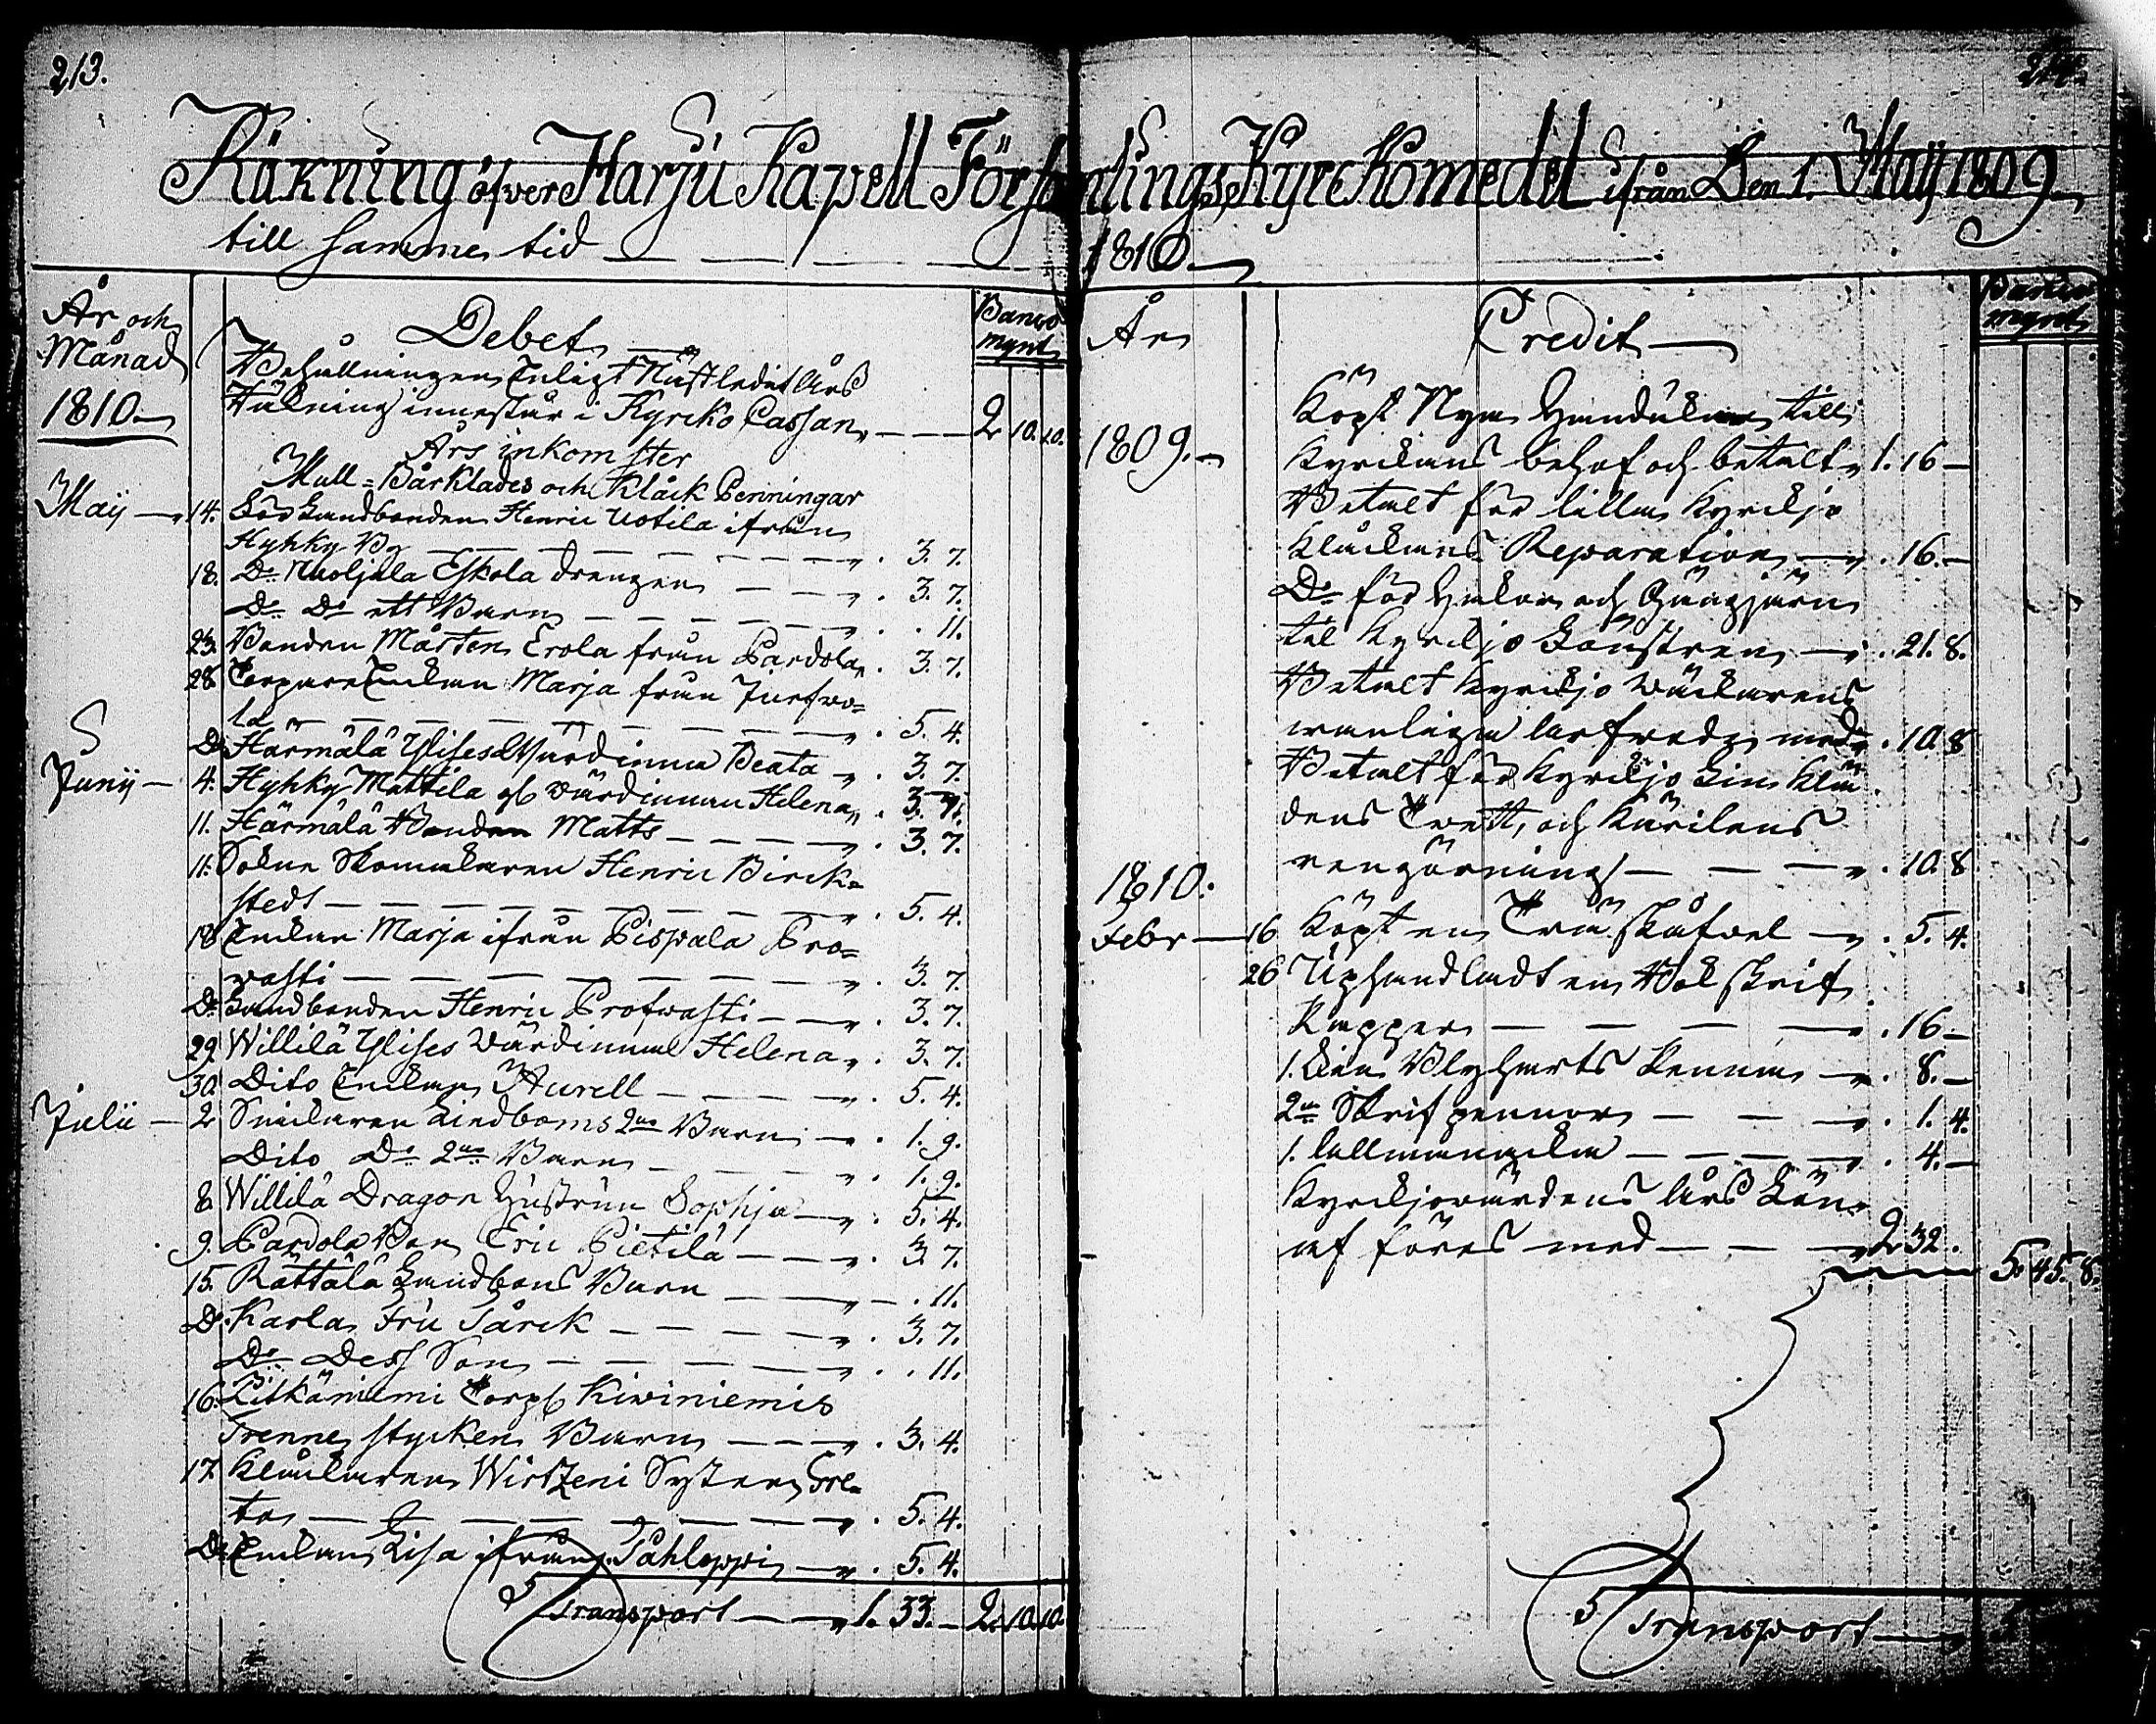 213.
214.
Räkning öfver Harju Kapell Församlings Kyrckomedel ifrån Den 1. Maij 1809
till samme tid — 1810
År och
Månad
1810
Debet
Banco
mynt
Behållningen Enligt Nästledit Års
Räkning innestår i Kyrcko Cassan — 2 10. 10.
Års inkomster
Mull= Bårklädes och Klåck Penningar
Maij — 14. För Landbonden Henric Uotila ifrån
Hyhky By — . 3. 7.
18. Do Nuoljala Eskola drengen — . 3. 7.
Do Do ett Barn — . . 11.
23. Bonden Mårten Erola från Pardola . 3. 7.
28. Marja från
la — . 5. 4.
Do Härmälä Ylises Wärdinna Beata — . 3. 7.
Junij — 4. Hyhky Mattila gl Wärdinnan Helena . 3. 7.
11. Härmälä Bonden Matts — . 3. 7.
11. Sokne Skomakaren Henric Birck=
stedt — . 5. 4.
18. Enckan Marja ifrån Pispala Pro=
wasti — . 3. 7.
Do Landbonden Henric Profwasti — . 3. 7.
29. Willilä Ylises Wärdinna Helena . 3. 7.
30. Dito Enckan Aurell — . 5. 4.
Julii — 2 Snickaren Lindboms 2ne Barn — . 1. 9.
Dito Do 2ne Barn — . 1. 9.
8. Willilä Dragon Hustrun Sophja — . 5. 4.
9. Pardola Bon Eric Pietilä — . 3. 7.
15. Rättälä Landbons Barn — . 11.
Do Karla Fru Sårck — . 3. 7.
Do Dess Son — . . 11.
16. Pitkäniemi Torp Kiviniemis
Trenne stycken Barn — . 3. 4.
17. Klåckaren Wirtzeni Syster Gre=
ta — . 5. 4.
Do Enckan Lisa ifrån Påhloppi — . 5. 4.
Transport — 1. 33. — 2. 10. 10.
År
Credit
Banco
mynt
1809.
Köpt Nya Handukar till
Kyrckans behof och bettalt 1. 16 —
Betalt för lilla Kyrckjo
Klåckans Reparation — . 16. —
Do för Hakar och Gångjärn
til Kyrckjo Fönstren — . 21. 8.
Betalt Kyrckjo Wäcktarens
wanliga med . 10 8
Betalt för Kyrckjo Lin Klä
dens Twätt, och Kårilens
rengörning — . 10 8
1810.
Febr — 16 Köpt en Trä skåfvel — . 5. 4.
26 Uphandladt en Bok Skrif
Papper — . 16 —
1. Blyharts Penna — . 8. —
2ne Skrifpennor — . 1. 4.
1. Allmanacka — . 4. —
Kyrckjowärdens Års Lön
af föres med — 2 32.
5. 45. 8.
Transport — 5